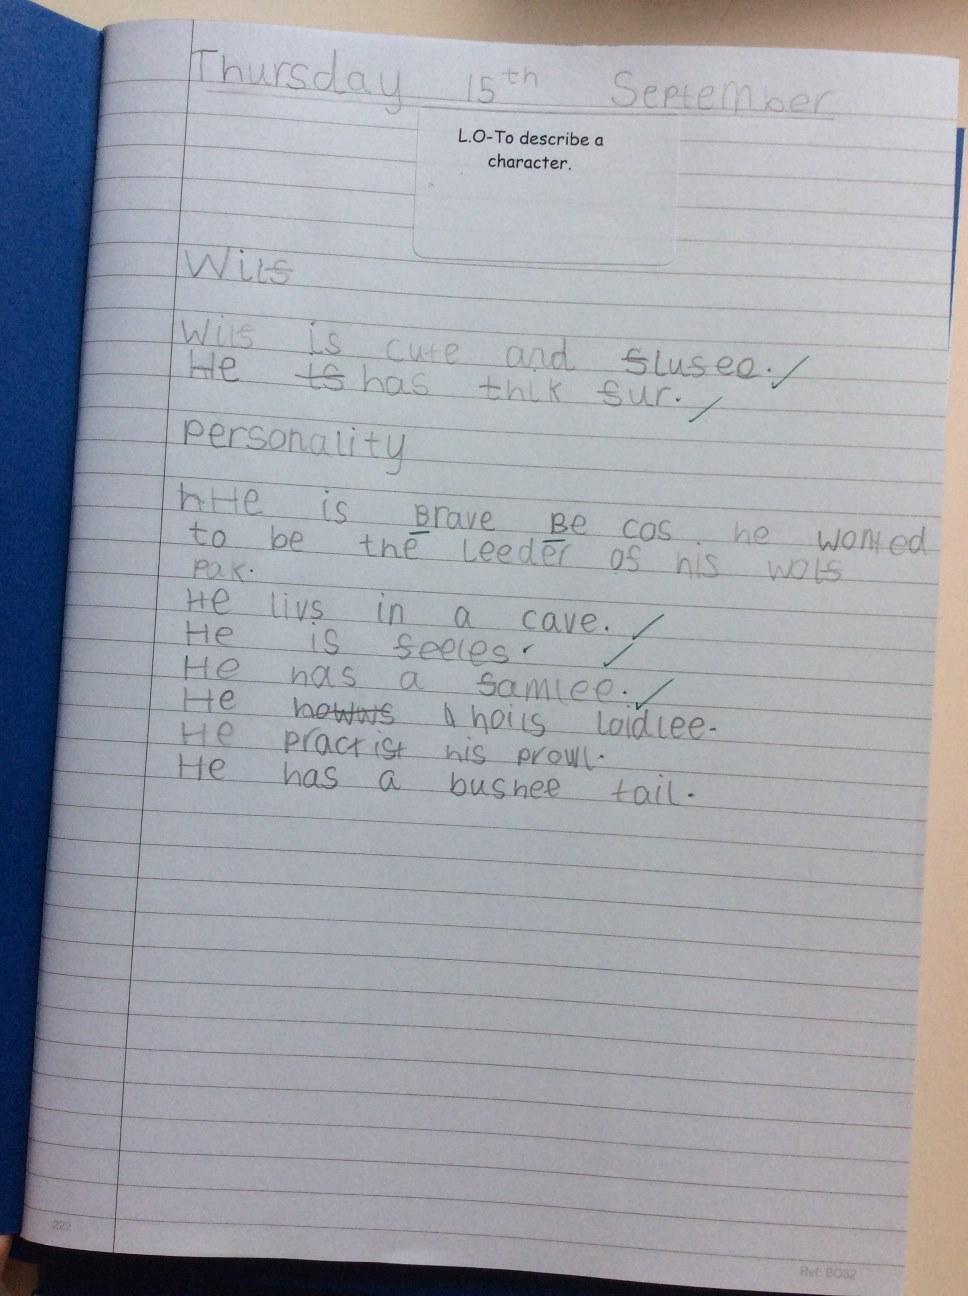 Thursday 15th September
L.O-To describe a
character.
Wifs
Wifs is cute and flufee.
He is has thik fur.
personality
hHe is Brave Be cos. he wonted
to be the leeder of his wolf
pak.
He livs in a cave.
He is feeles.
He has a famlee.
He howws hoils loidlee.
He practist his prowl.
He has a bushee tail.
222
Ref: BO32